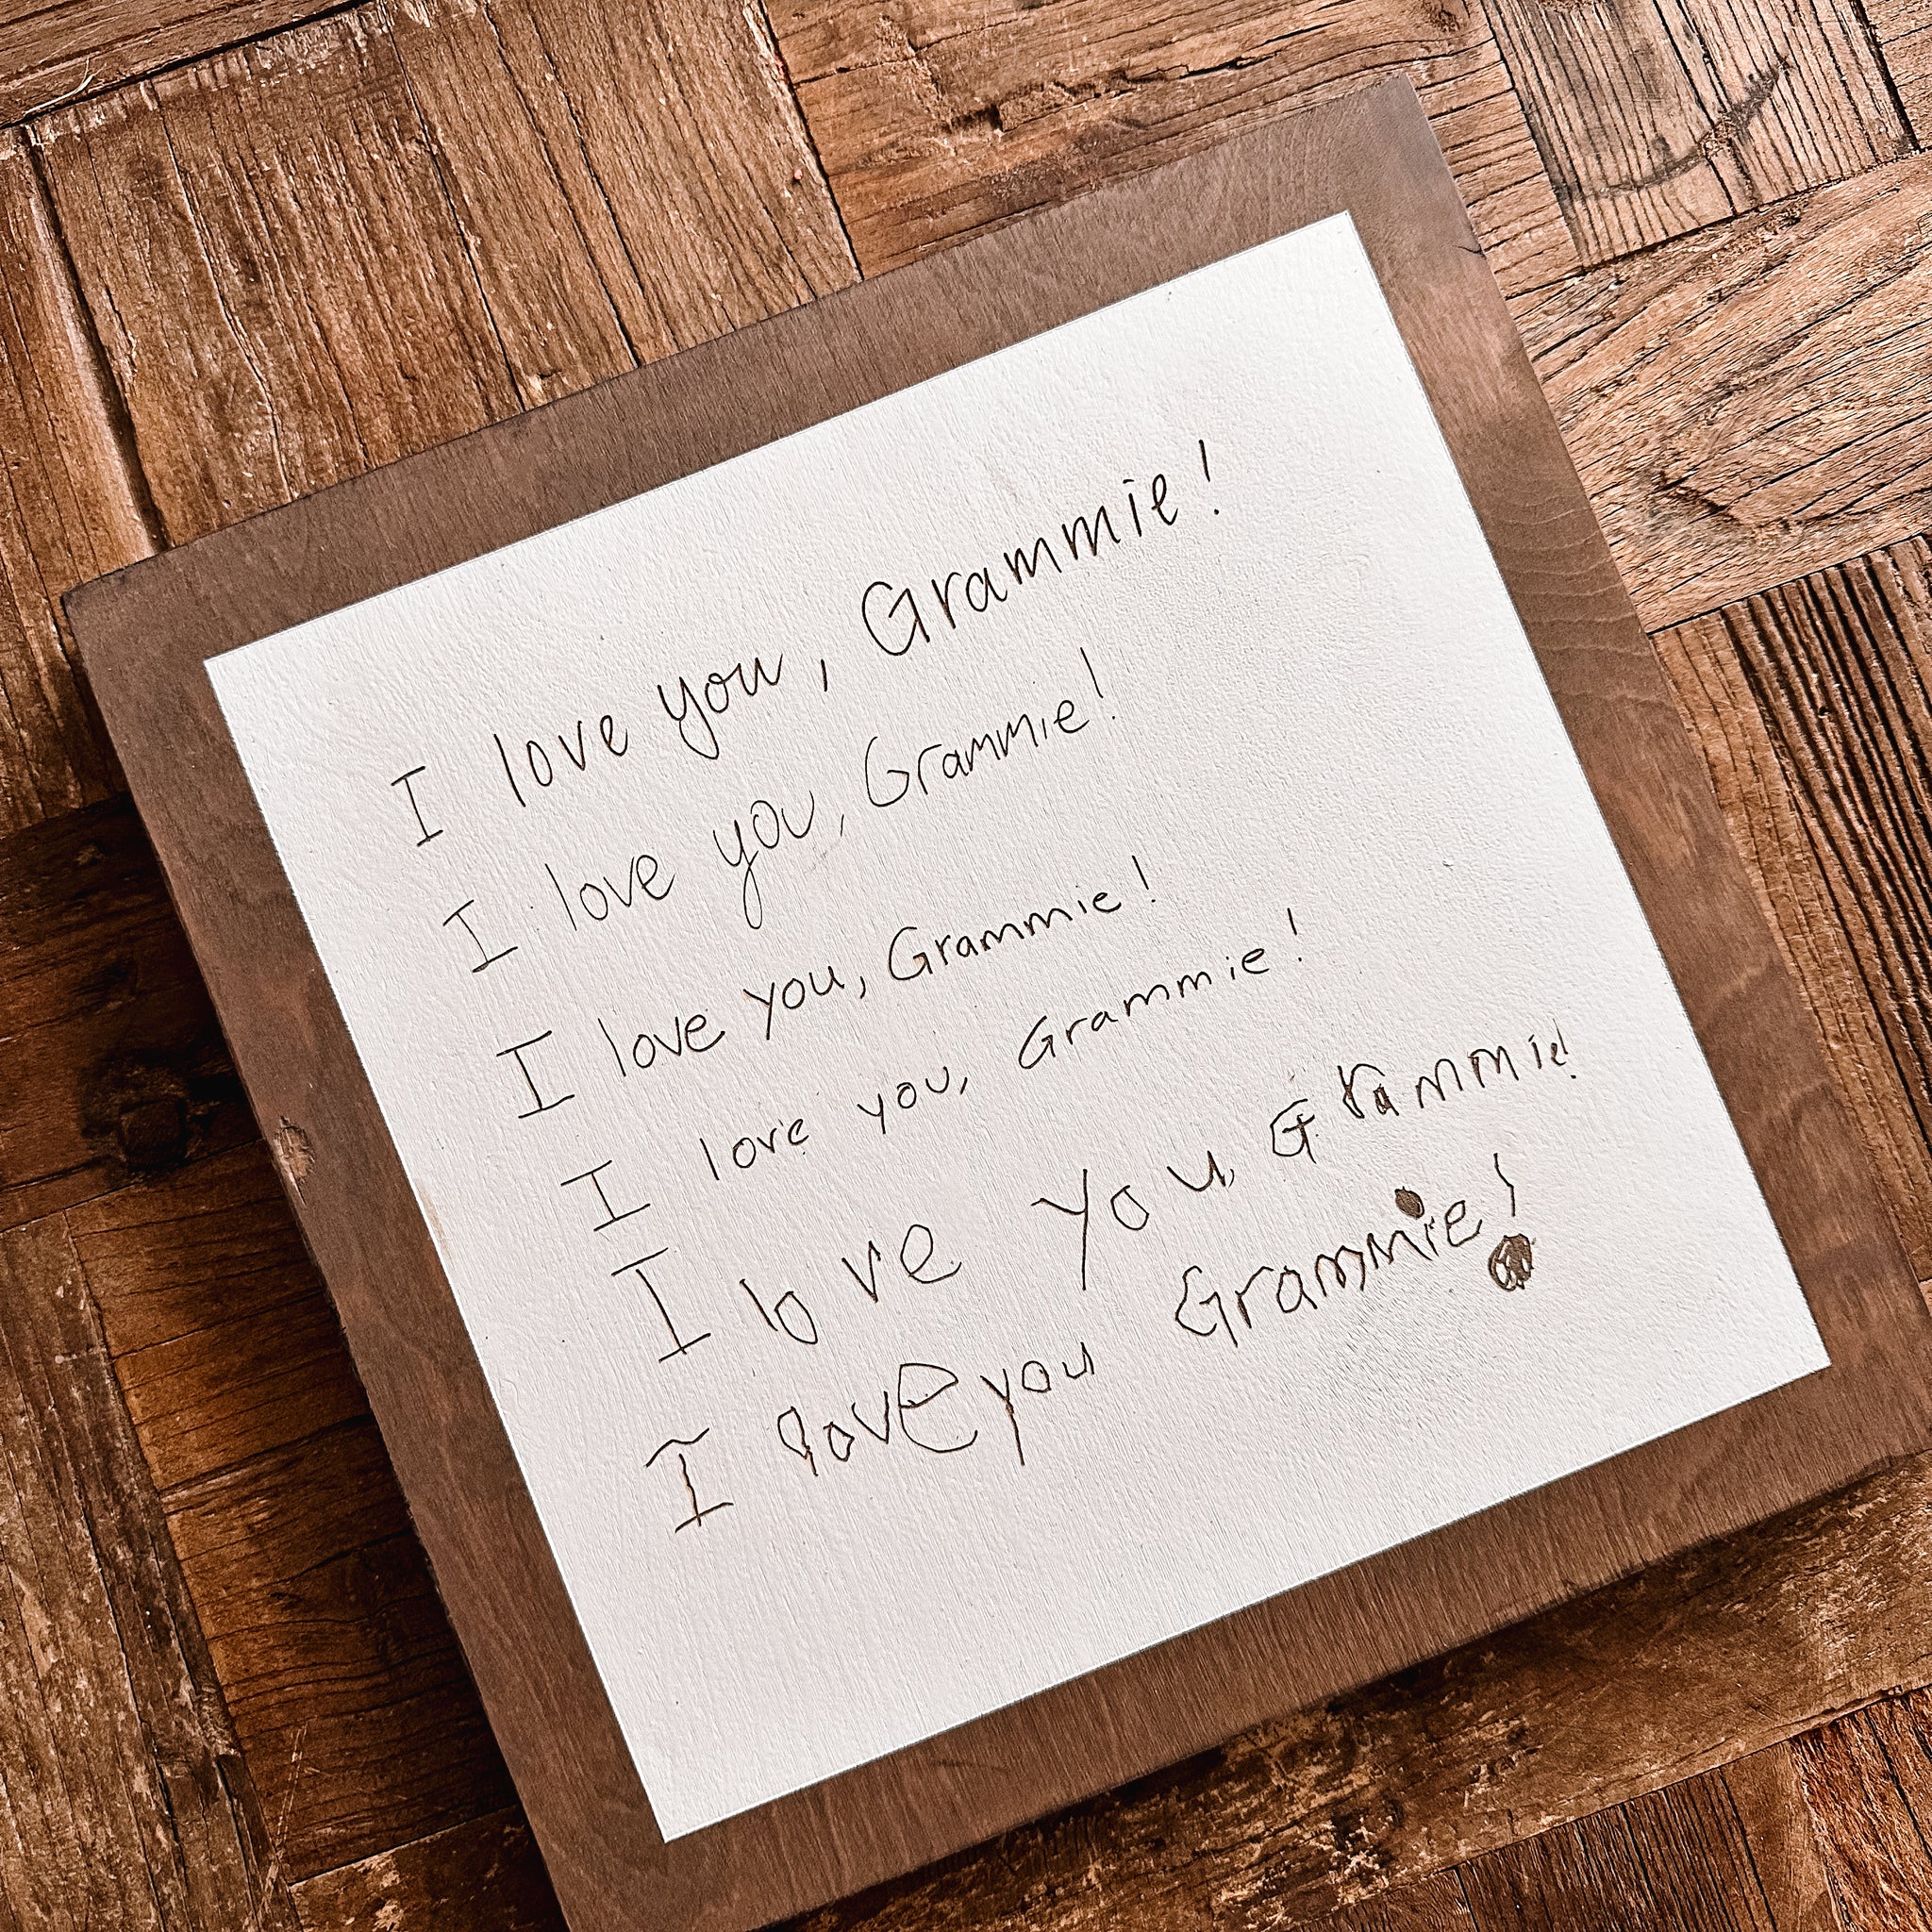 I love you, Grammie!
I love you, Grammie!
I love you, Grammie!
I love you, Grammie!
I love you, Grammie!
I love you Grammie!